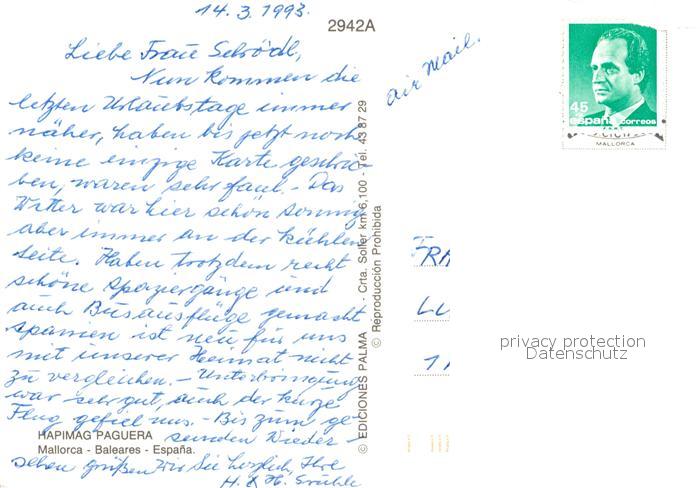 14.3.1993.
2942A
Liebe Frau Schrödl,
Nun kommen die
letzten Urlaubstage immer
näher, haben bis jetzt noch
keine einzige Karte geschrie-
ben, waren sehr faul. - Das
Wetter war hier schön sonnig
aber immer an der kühlen
Seite. Haben trotzdem recht
schöne Spaziergänge und
auch Busausflüge gemacht
Spanien ist neu für uns
mit unserer Heimat nicht
zu vergleichen. - Unterbringung
war sehr gut, auch der kurze
Flug gefiel uns. - Bis zum ge-
sunden Wieder-
sehen grüßen wir Sie herzlich, Ihre
H. & H.
HAPIMAG PAGUERA
Mallorca - Baleares - España.
© EDICIONES PALMA Crta. Soller km. 6,100 Tel. 43 87 29
© Reproducción Prohibida
air mail.
45
españa correos
MALLORCA
FRA
LU
1
privacy protection
Datenschutz